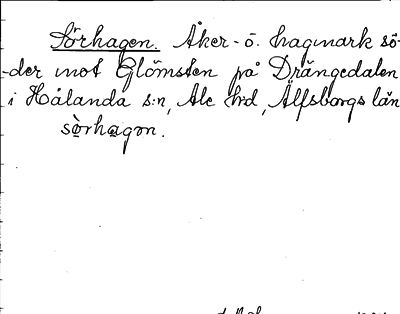 Sörhagen. Åker- ö. hagmark sö-
-der mot Glömsten på Drängedalen
i Hålanda s:n, Ale hd, Älfsborgs län
sòrhagon.